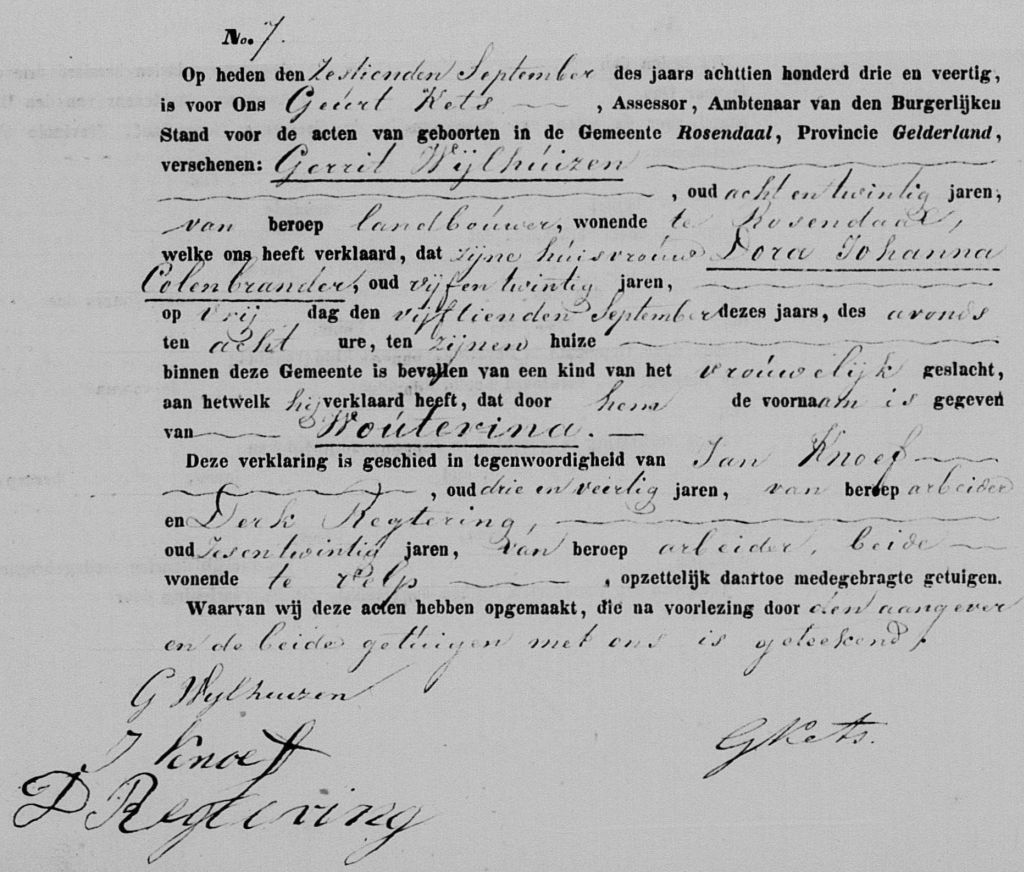 No. 7.
Op heden den Zestienden September des jaars achttien honderd drie en veertig,
is voor Ons Geúrt Kets , Assessor, Ambtenaar van den Burgerlijken
Stand voor de acten van geboorten in de Gemeente Rosendaal, Provincie Gelderland,
verschenen: Gerrit Wijlhúizen
, oud acht en twintig jaren,
van beroep landboúwer, wonende te Rosendaal,
welke ons heeft verklaard, dat zijne húisvroúw Dora Johanna
Colenbrander, oud vijf en twintig jaren,
op vrij dag den vijftienden September dezes jaars, des avonds
ten acht ure, ten zijnen huize
binnen deze Gemeente is bevallen van een kind van het vroúwelijk geslacht,
aan hetwelk hij verklaard heeft, dat door hem de voornaam is gegeven
van Woúterina.
Deze verklaring is geschied in tegenwoordigheid van Jan Knoef
, oud drie en veertig jaren, van beroep arbeider
en Derk Regtering,
oud zesentwintig jaren, van beroep arbeider, beide
wonende te Velp , opzettelijk daartoe medegebragte getuigen.
Waarvan wij deze acten hebben opgemaakt, die na voorlezing door den aangever
en de beide getúigen met ons is geteekend.
G Wylhuizen
J Knoef
GKets.
D Regtering